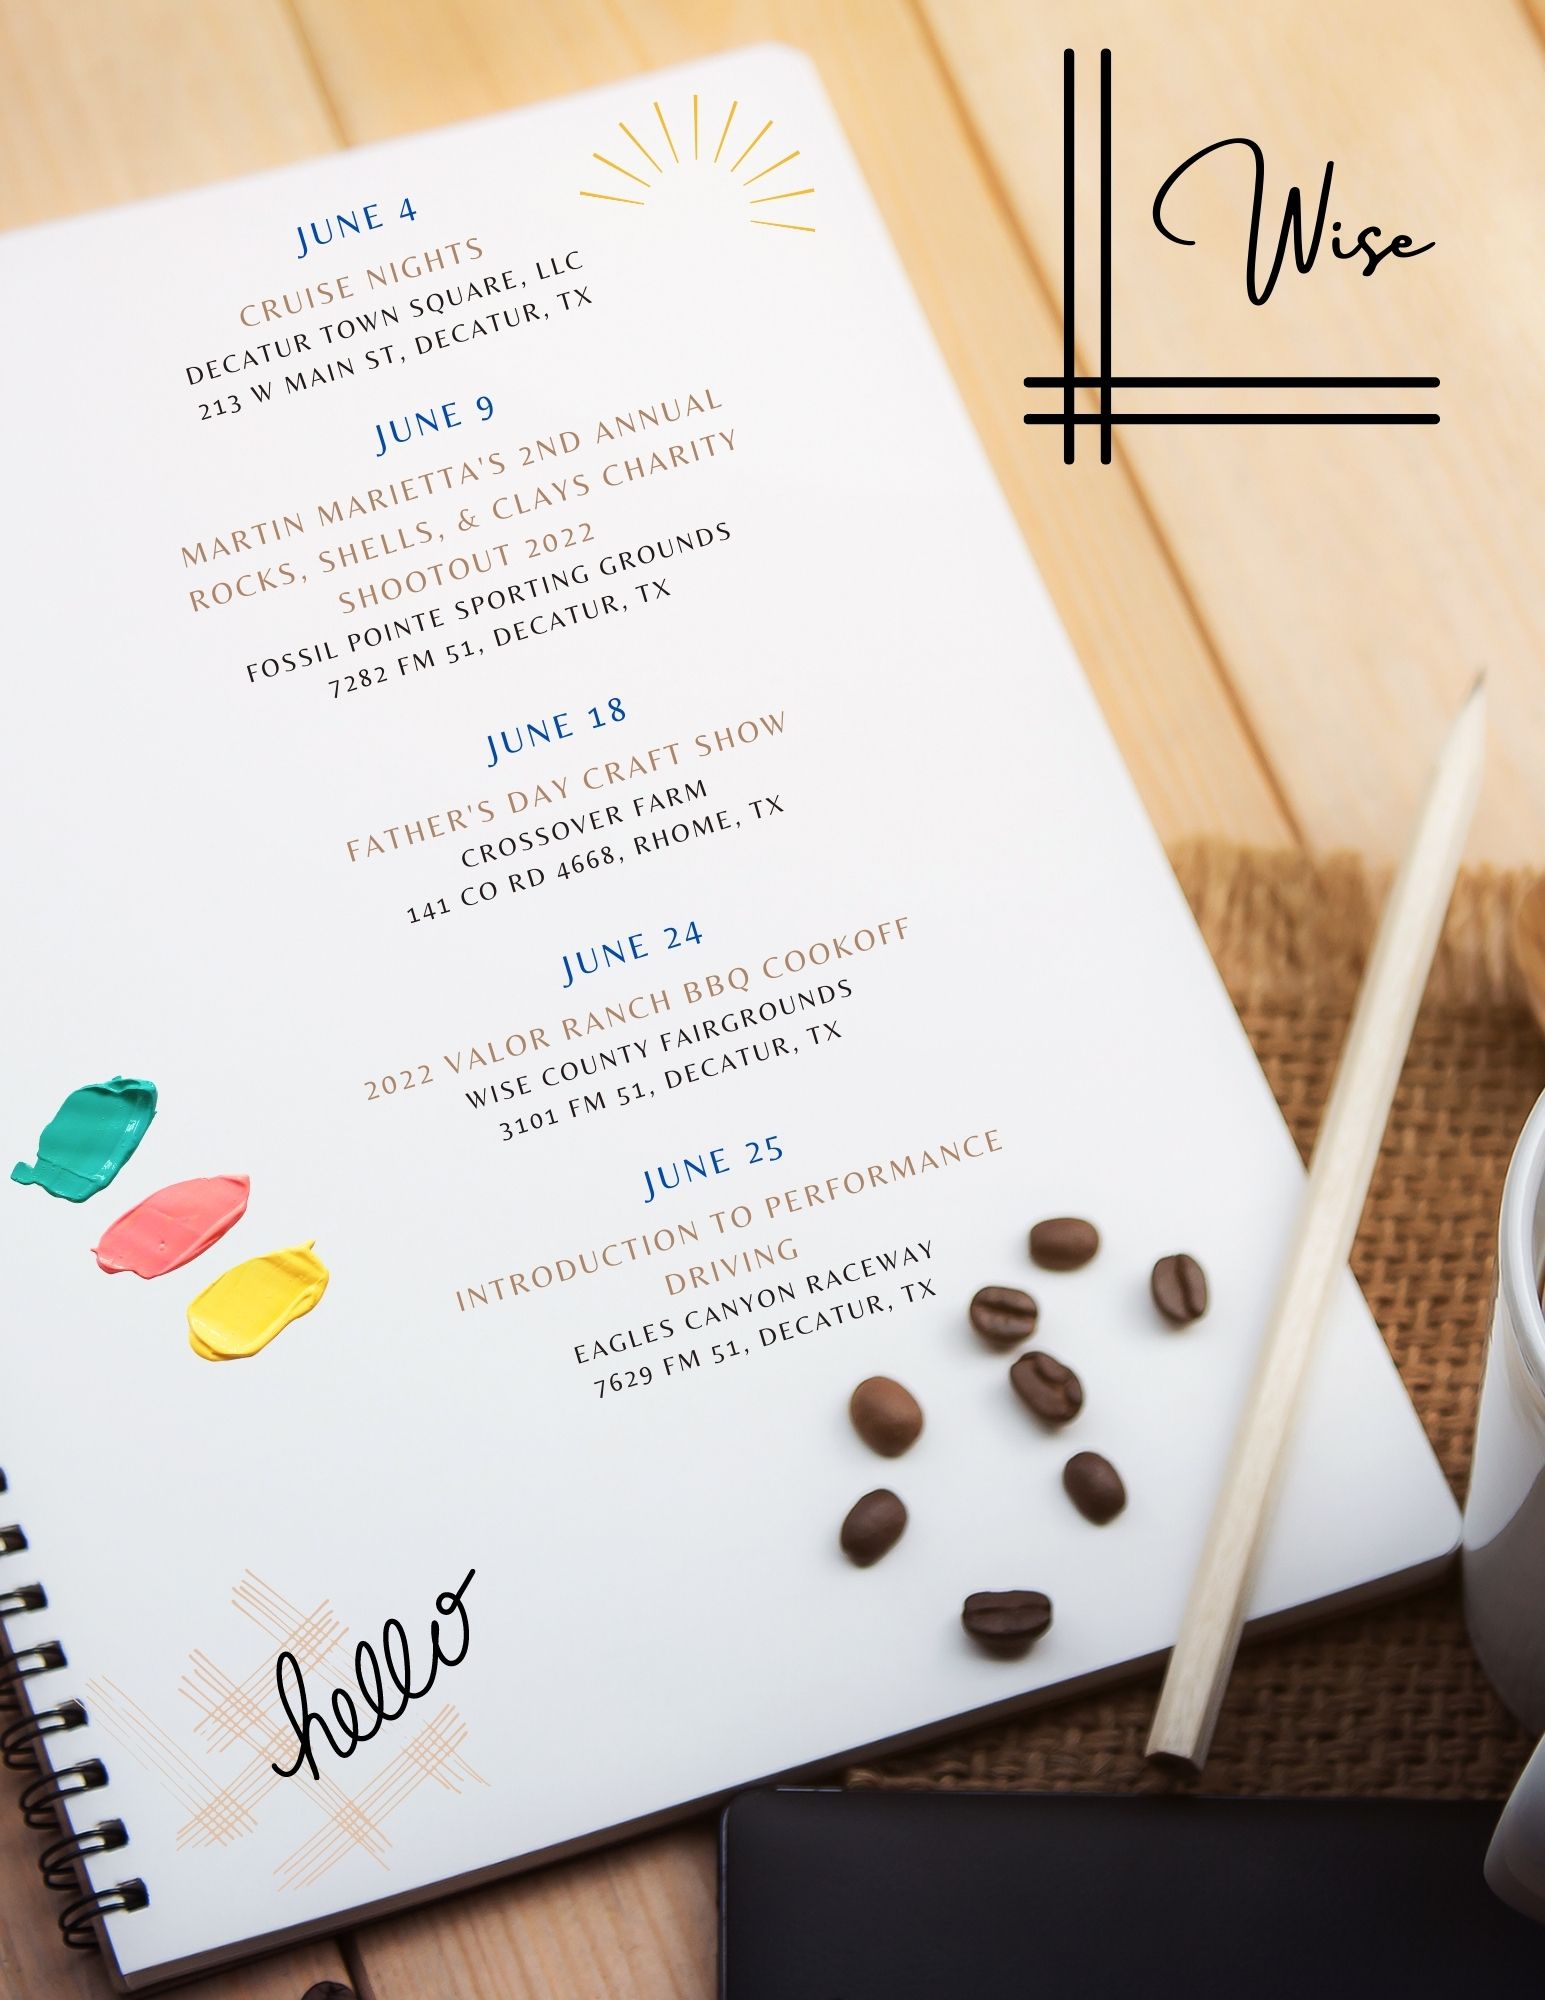 Wise
JUNE 4
CRUISE NIGHTS
DECATUR TOWN SQUARE, LLC
213 W MAIN ST, DECATUR, TX
JUNE 9
MARTIN MARIETTA'S 2ND ANNUAL
ROCKS, SHELLS, & CLAYS CHARITY
SHOOTOUT 2022
FOSSIL POINTE SPORTING GROUNDS
7282 FM 51, DECATUR, TX
JUNE 18
FATHER'S DAY CRAFT SHOW
CROSSOVER FARM
141 CO RD 4668, RHOME, TX
JUNE 24
2022 VALOR RANCH BBQ COOKOFF
WISE COUNTY FAIRGROUNDS
3101 FM 51, DECATUR, TX
JUNE 25
INTRODUCTION TO PERFORMANCE
DRIVING
EAGLES CANYON RACEWAY
7629 FM 51, DECATUR, TX
hello